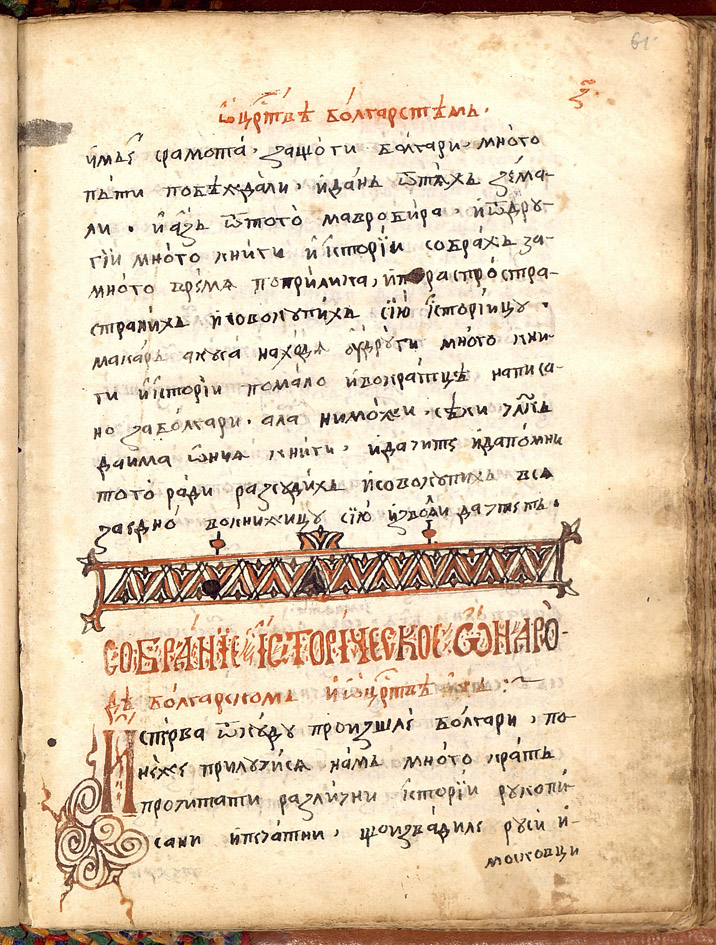 61
ѡ҆ црⷭ҇твѣ бо́лгарстѣмъ.
срамота̀, защоти болгари, много
пъти побѣждали, и҆данъ ѿтѧхъ зе́ма-
ли. и҆а҆зъ ѿтото мавроби́ра, и҆ѿдру-
гїи мно́го книги и҆исторїи собра́хъ за-
много вре́мѧ
странихъ и҆совокупихъ сїю̀ и҆сторїицу.
макаръ акуса находѧ ѹ҆дру́ги мно́го кни-
ги и҆и҆сторїи помало ивократцѣ написа-
но заболгари. ала нимо́жеи. сѣки
даима ѡ҆нїѧ книги, идачите идапомни
тото̀ ра́ди разсуди́хъ и҆совокупихъ всѧ
заедно̀ вокнижицу сїю̀ и҆зволи да
СОБРА́НЇЕ И҆СТОРИ́ЧЕСКОЕ Ѡ҆ НАРО́-
дѣ болгарскомъ и҆ ѡ҆ црⷭ҇твѣ и҆хъ :~
И҆сперва ѿкуду произшлѐ бо́лгари, по-
не́же прилучисѧ намъ мно́го кратъ
прочитати разли́чни и҆сторїи рукопи-
сани и҆печатни, що извадиле русїи и҆-
московци